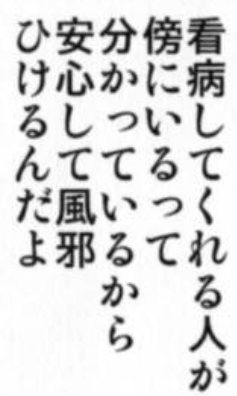 看病してくれる人が
傍にいるって
分かっているから
安心して風邪
ひけるんだよ